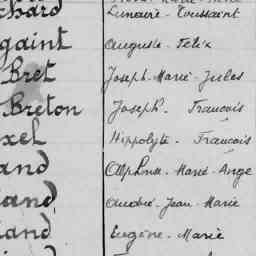 chard Toussaint
gaint Auguste - Félix
Bret Joseph - Marie - Jules
Breton Joseph - Francois
xel Hippolyte - Francois
and Alphonse - Marie - Ange
and André - Jean - Marie
and Eugène - Marie